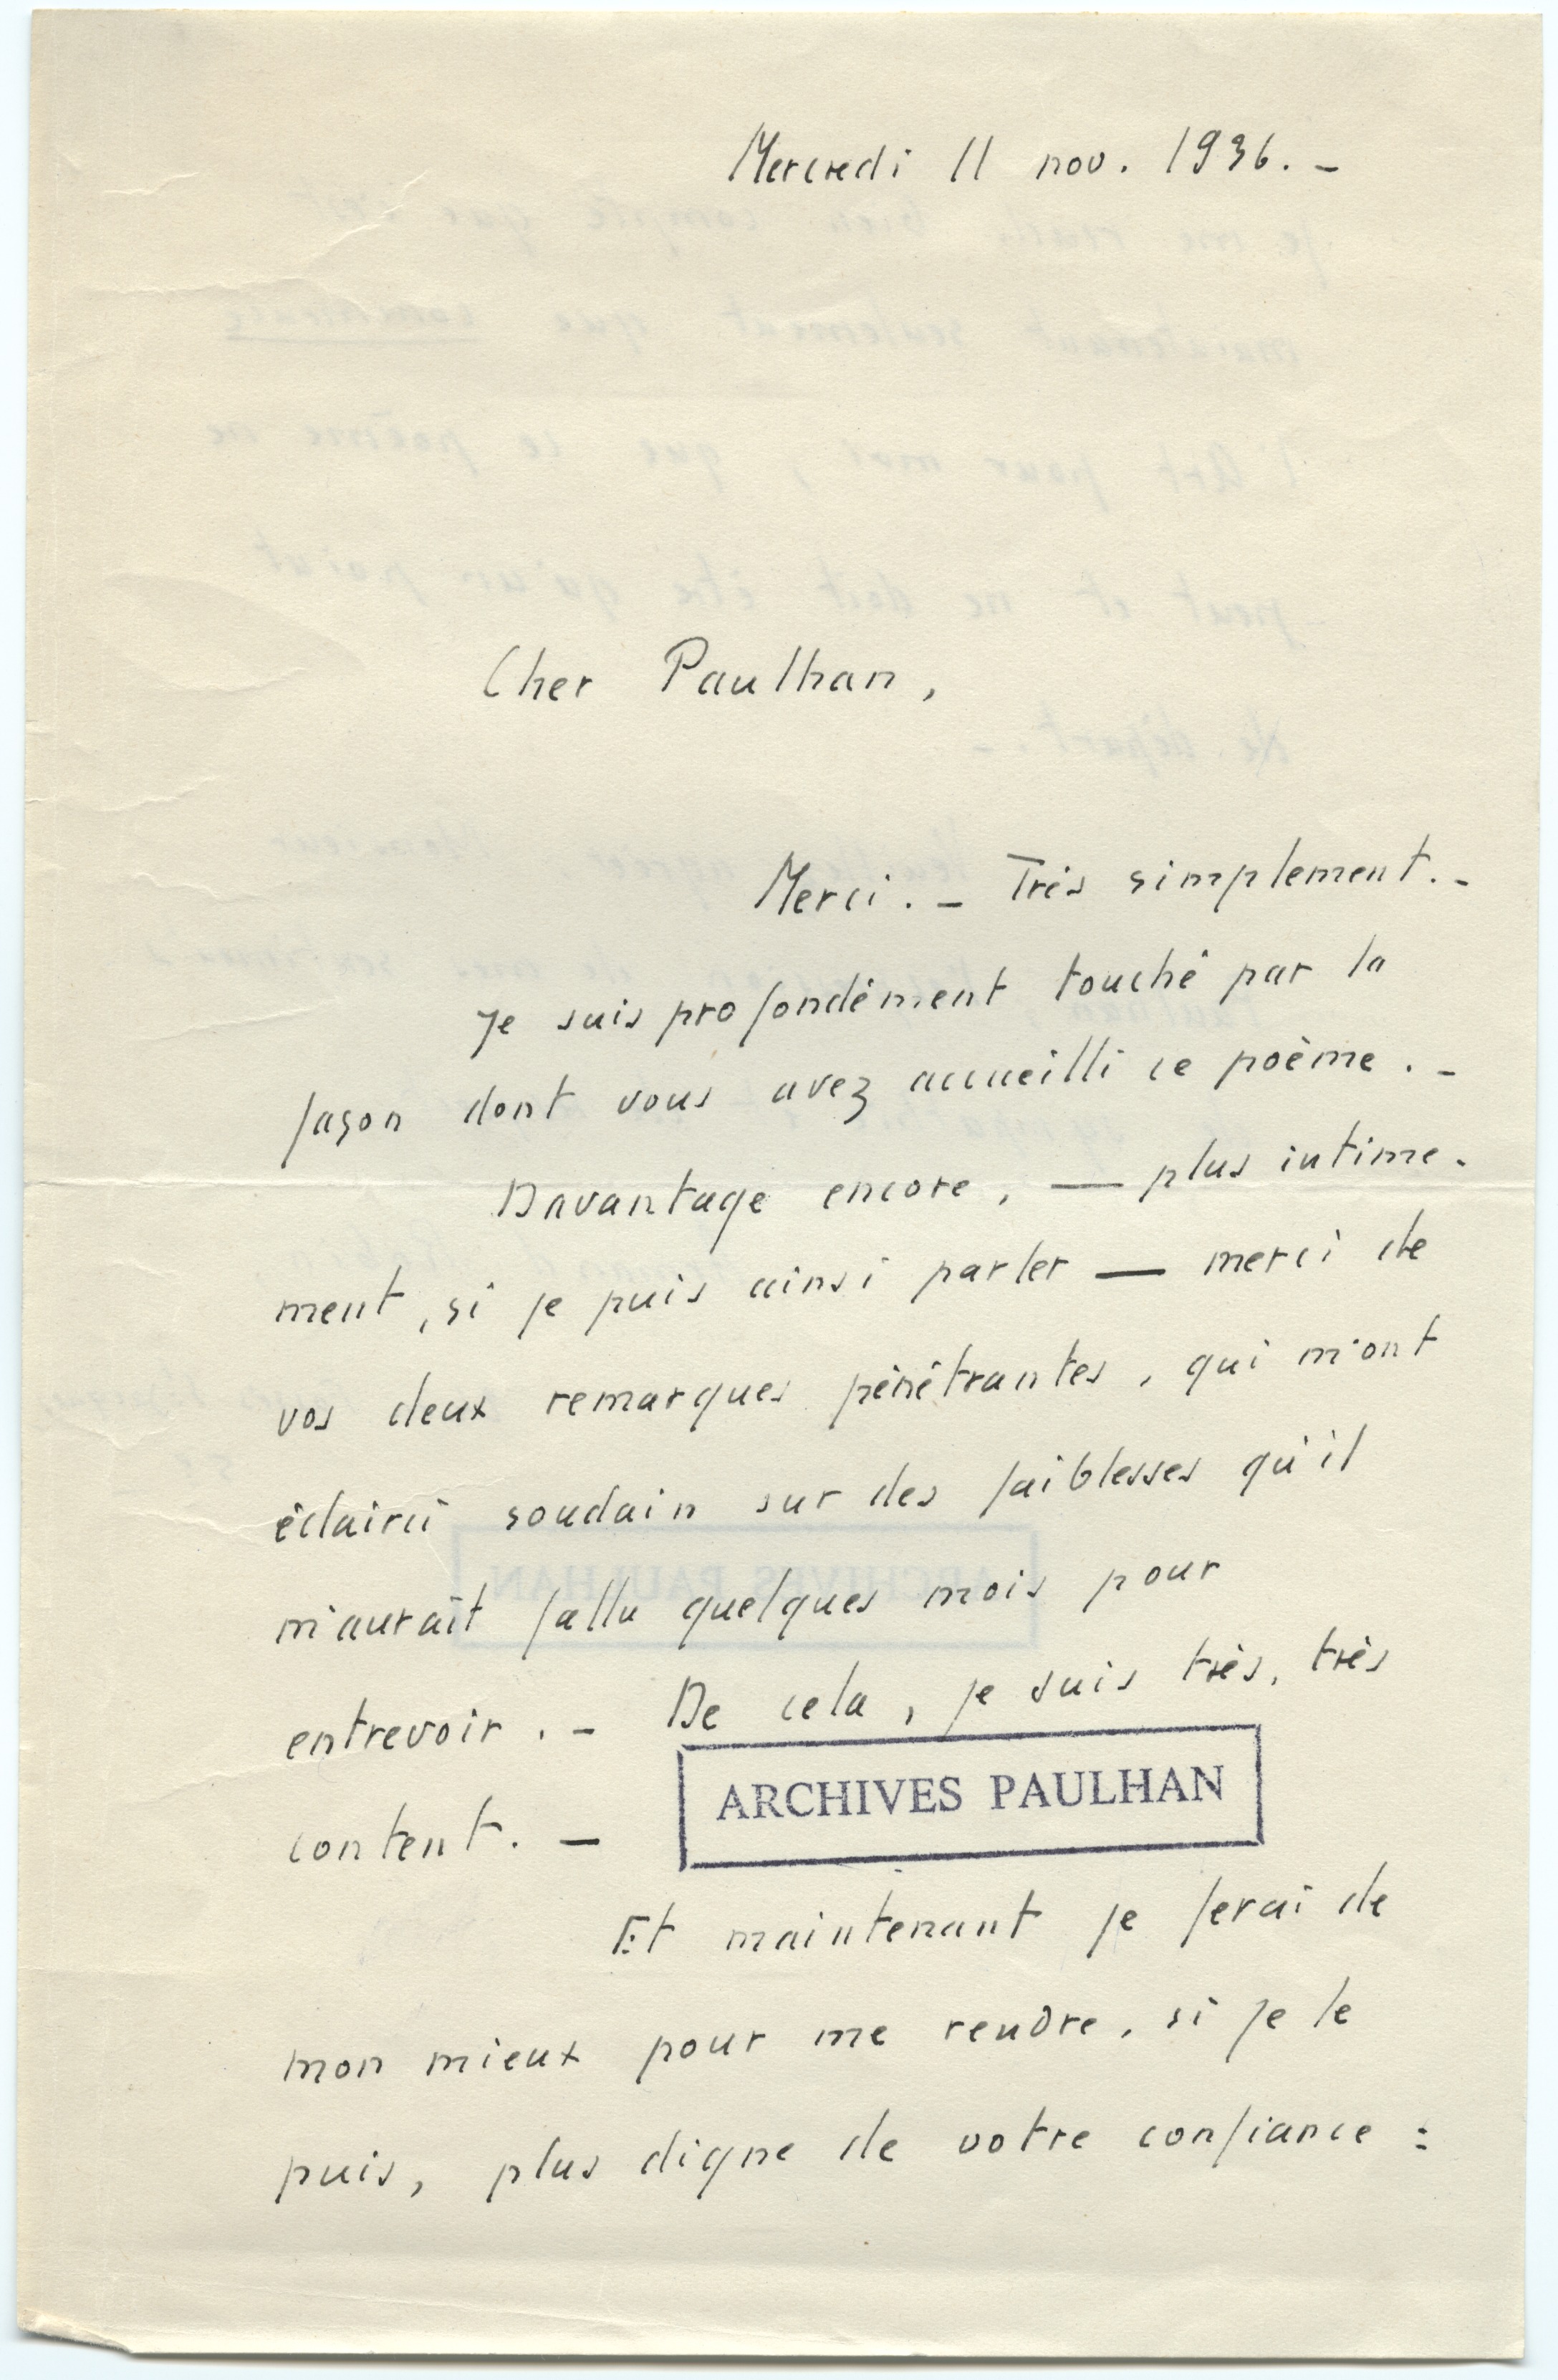 Mercredi 11 nov. 1936. –
Cher Paulhan,
Merci. – Très simplement. –
Je suis profondément touché par la
façon dont vous avez accueilli ce poème. –
Davantage encore, — plus intime-
ment, si je puis ainsi parler — merci de
vos deux remarques pénétrantes, qui m'ont
éclairci soudain sur des faiblesses qu'il
m'aurait fallu quelques mois pour
entrevoir. – De cela, je suis très, très
content. –
ARCHIVES PAULHAN
Et maintenant je ferai de
mon mieux pour me rendre, si je le
puis, plus digne de votre confiance :